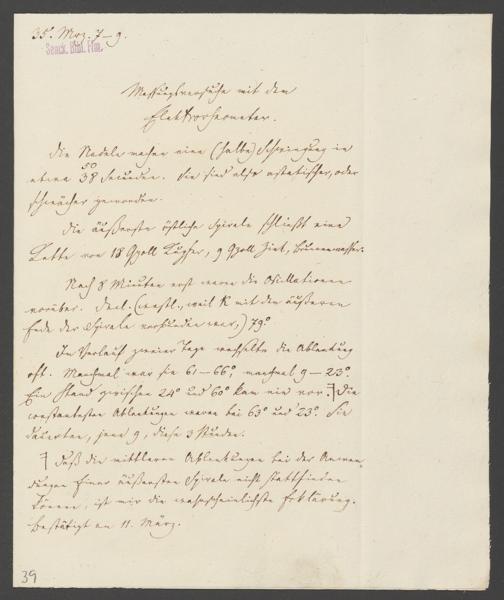 35. Mrz. 7–9.
Senck. Bibl. Ffm.
Messungsversuche mit dem
Elektrorheometer.
Die Nadeln machen eine (halbe) Schwingung in
50
etwa 38 Secunden. Sie sind also astatischer, oder
schwächer geworden.
Die äußerste östliche Spirale schließt eine
Kette von 18 □zoll Kupfer, 9 □zoll Zink, Brunnenwasser.
Nach 8 Minuten erst waren die Oscillationen
vorüber. Decl. (westl., weil K mit dem äußeren
Ende der Spirale verbunden war.) 79°
Im Verlauf zweier Tage wechselte die Ablenkung
oft. Manchmal war sie 61–66°, manchmal 9–23°.
Ein Stand zwischen 24° und 60° kam nie vor. Die
constantesten Ablenkungen waren bei 63° und 23°. Sie
dauerten, jene 9, diese 3 Stunden.
Daß die mittleren Ablenkungen bei der Anwen-
dung einer äußersten Spirale nicht stattfinden
können, ist mir die wahrscheinlichste Erklärung.
Bestätigt am 11. März.
39